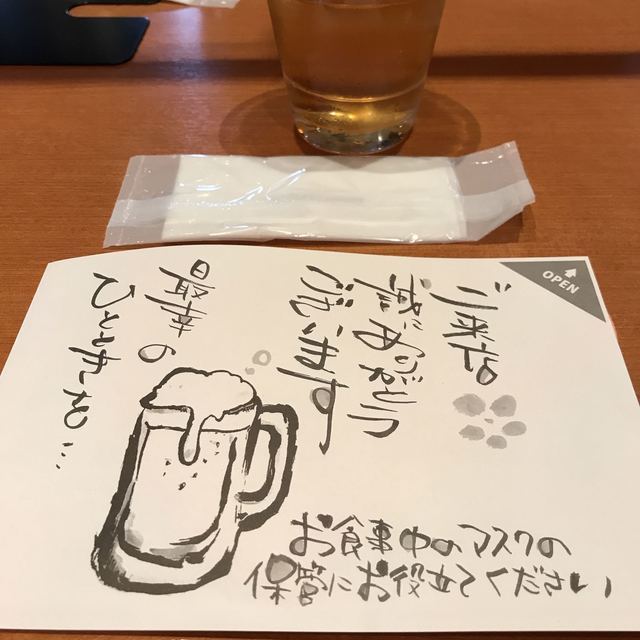 OPEN
ご来店
誠にありがとう
ございます
最幸の
ひとときを…
お食事中のマスクの
保管にお役立てください